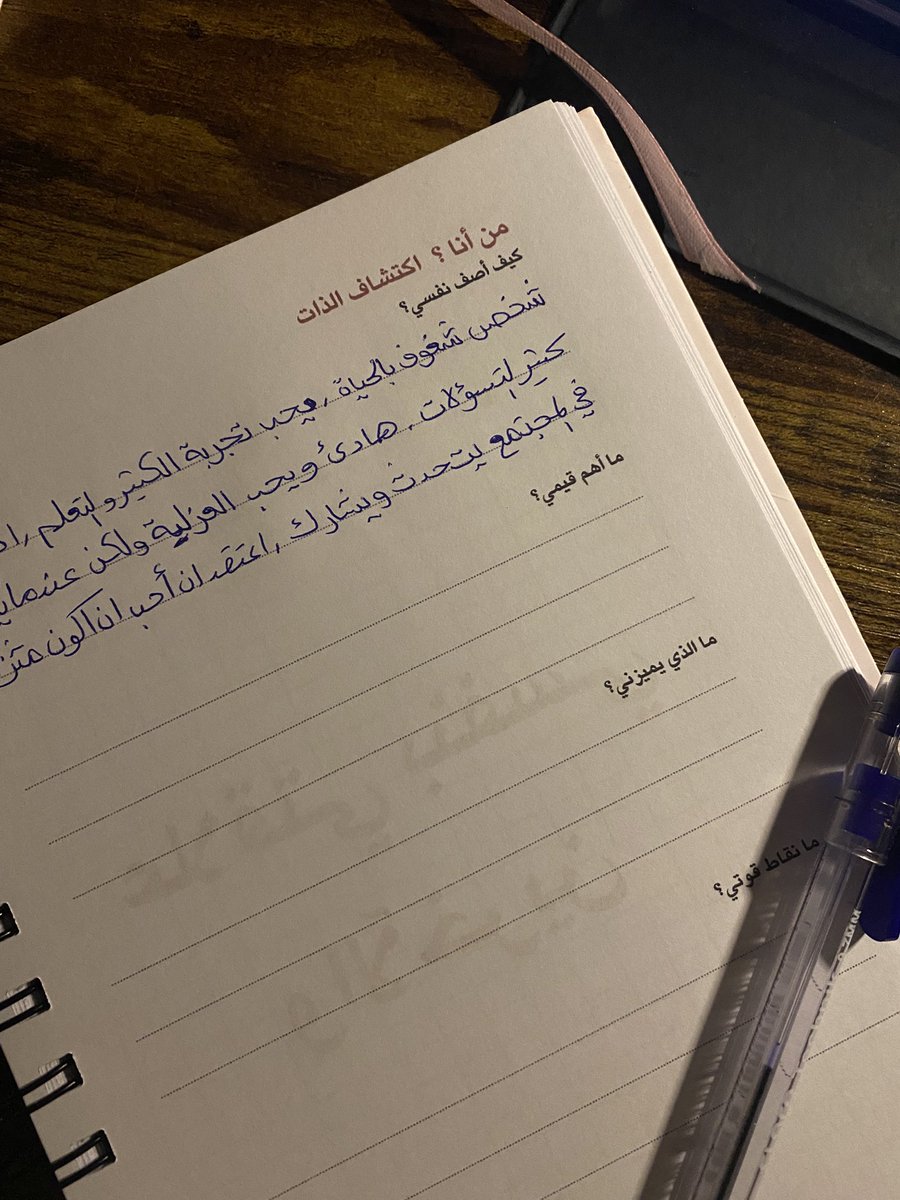 من أنا ؟ اكتشاف الذات
كيف أصف نفسي؟
شخص شغوف بالحياة , يحب تجربة الكثير و التعلم ,
كثير التسؤلات , هادئ ويحب العزلية ولكن عندما
في المجتمع يتحدث ويشارك , اعتقد ان أحب ان اكون
ما أهم قيمي؟
ما الذي يميزني؟
ما نقاط قوتي؟